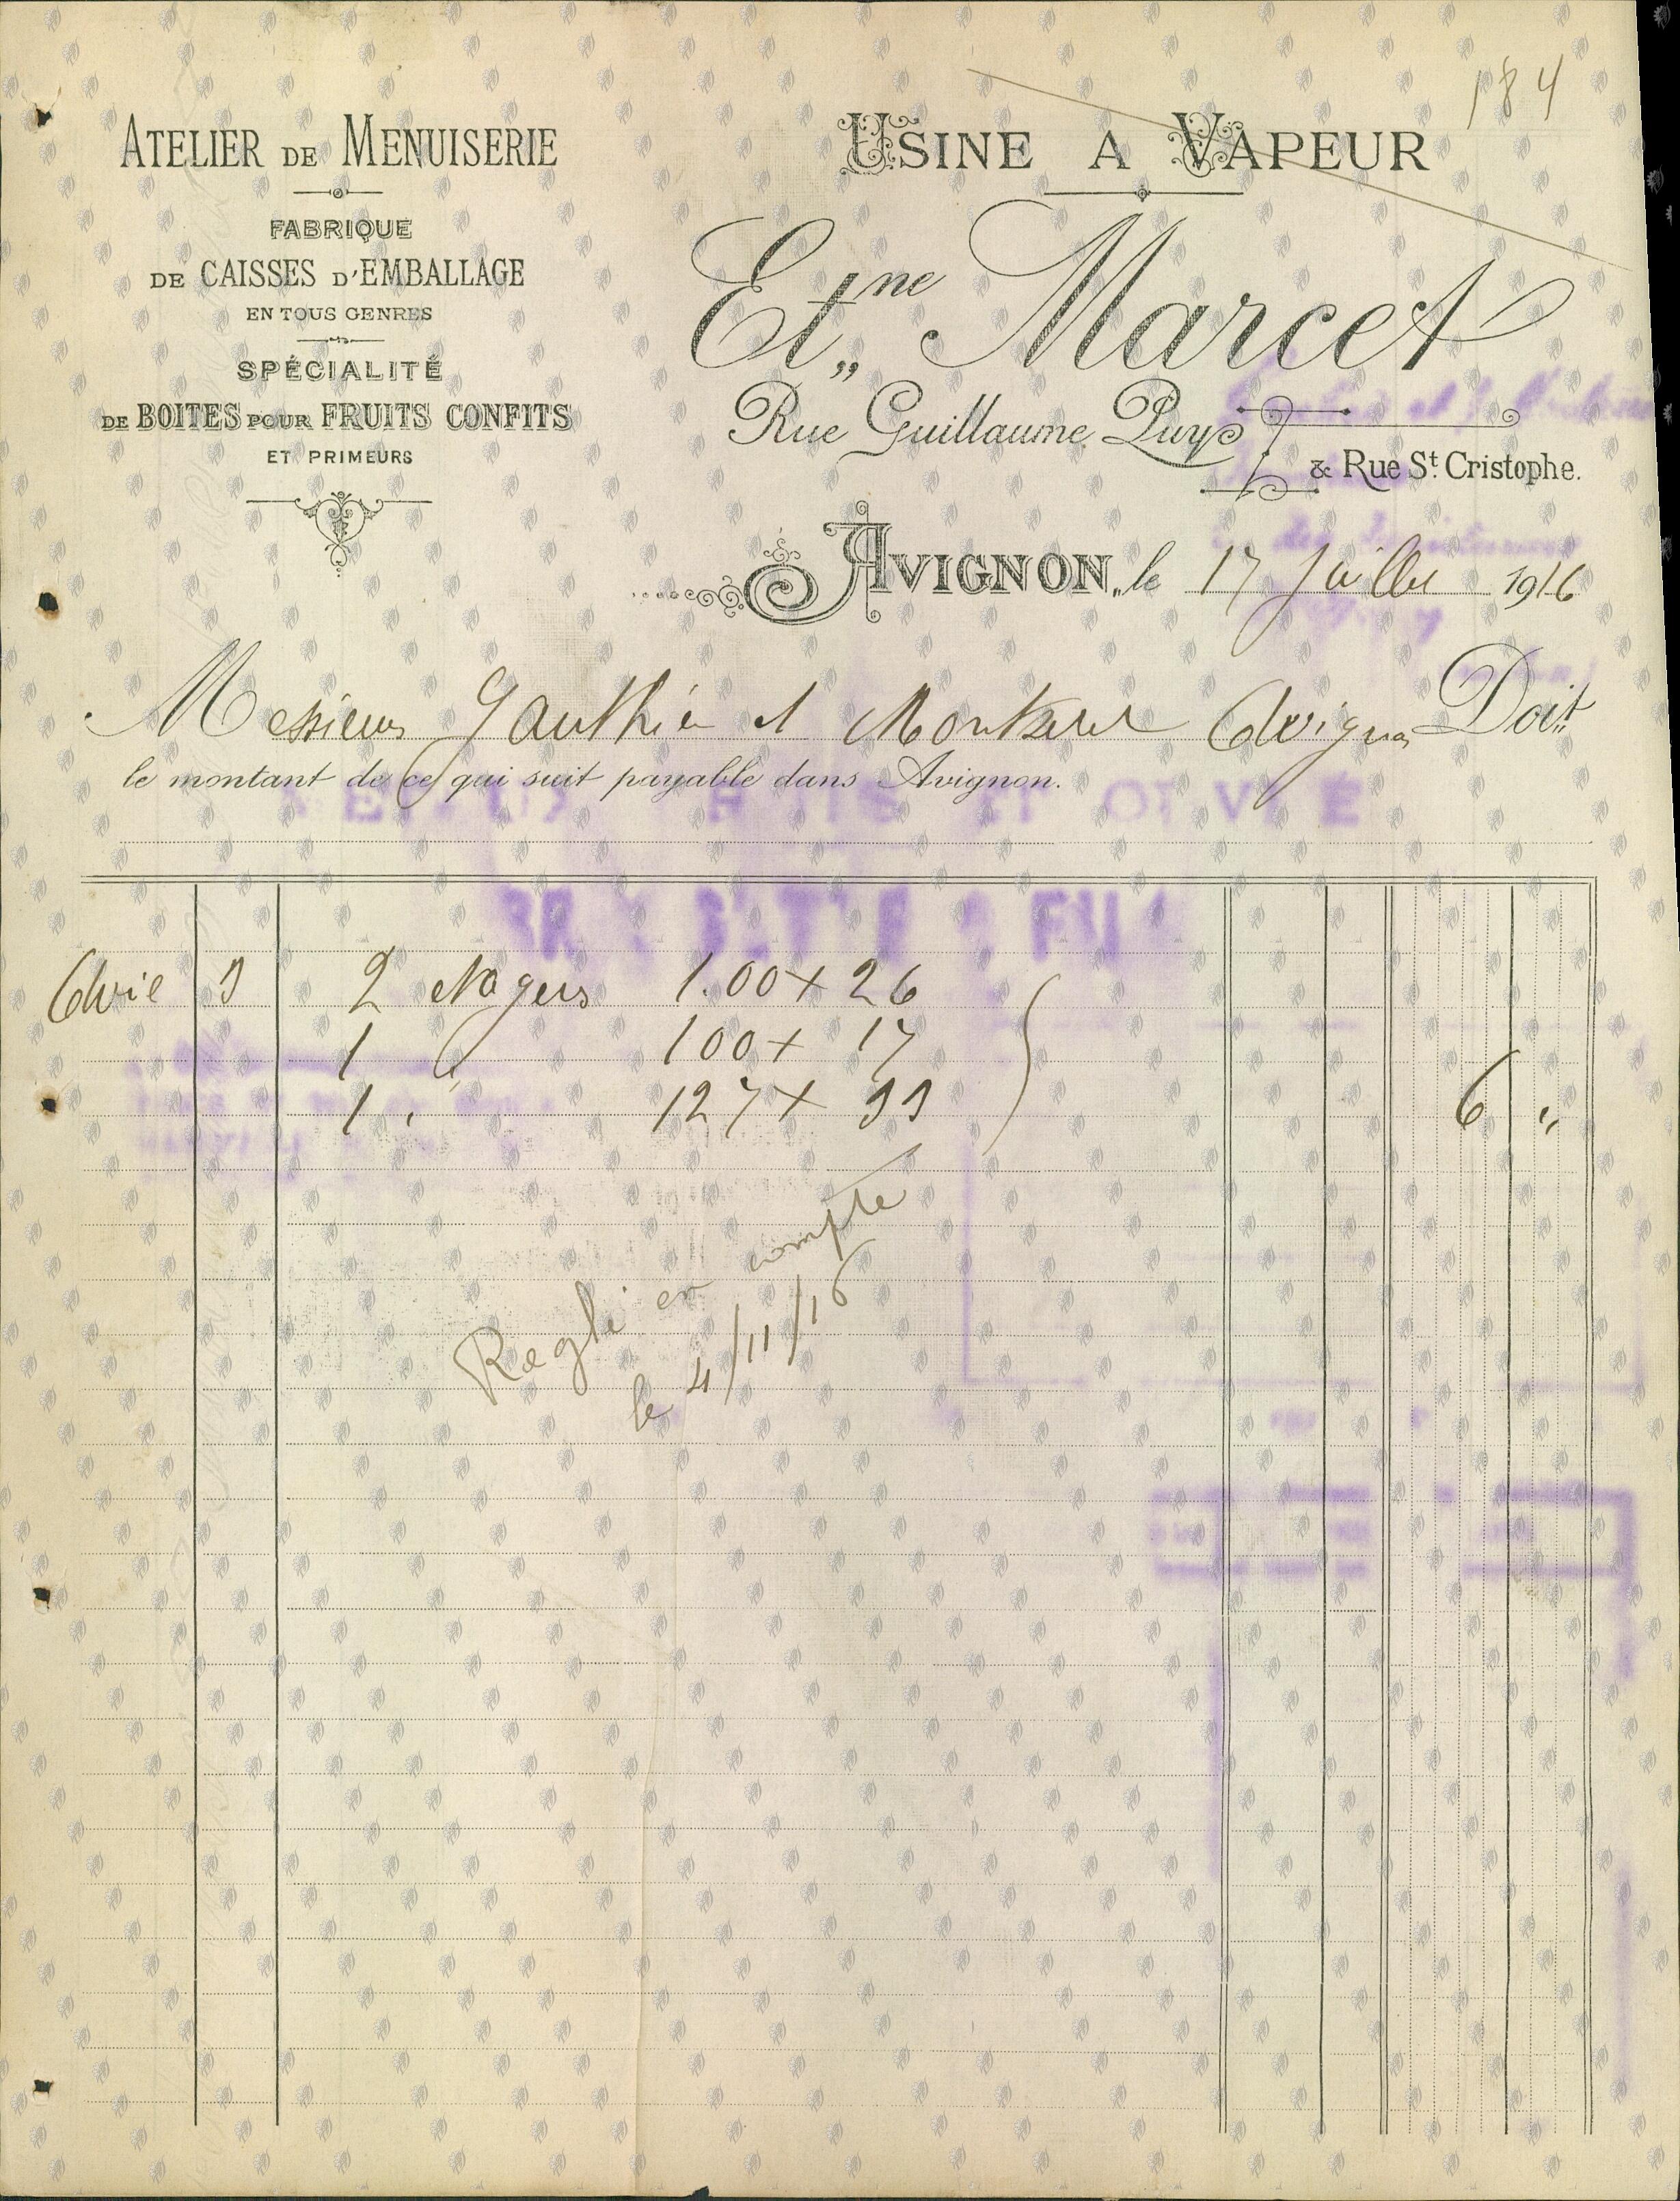 184
ATELIER DE MENUISERIE
FABRIQUE
DE CAISSES D'EMBALLAGE
EN TOUS GENRES
SPÉCIALITÉ
DE BOITES POUR FRUITS CONFITS
ET PRIMEURS
USINE A VAPEUR
Et,,ne Marcet
Rue Guillaume Puy
& Rue St. Cristophe.
AVIGNON, le 17 Juillet 1916
Messieurs Gauthier et Avignon Doit
le montant de ce qui suit payable dans Avignon.
2 etagers 1.00 x 26
1 " 100 x 17
1 " 127 x 6 "
Reglé en compte
le 4/11/16